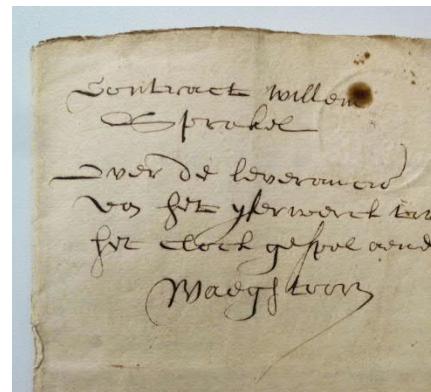 Contract willem
Sprakel
Over de leverancie
van het yserwerck tot
het clock gespel aende
Waeghtoorn